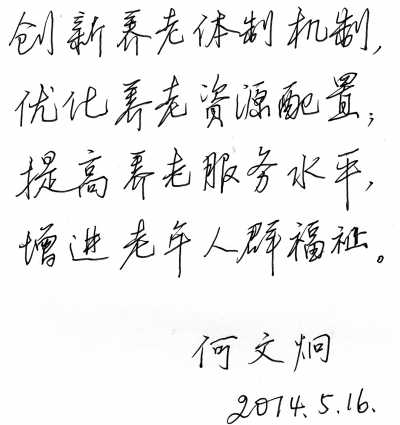 创新养老体制机制,
优化养老資源配置;
提高养老服务水平,
增进老年人群福祉。
何文炯
2014.5.16.